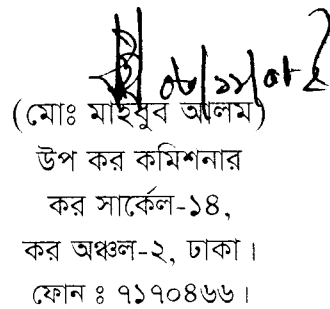 (মোঃ মাহবুব আলম)
উপ কর কমিশনার
কর সার্কেল-১৪,
কর অঞ্চল-২, ঢাকা।
ফোন ঃ ৭১৭০৪৬৬।